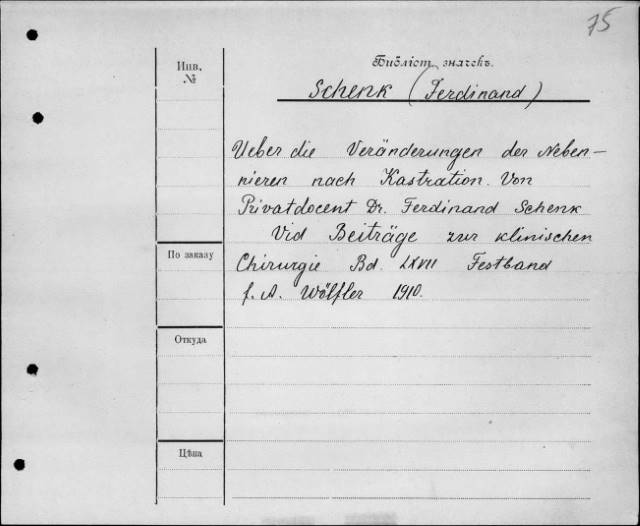 75
Библіот. значекъ.
Инв.
№
Schenk (Ferdinand)
Ueber die Veränderungen der Neben-
nieren nach Kastration. Von
Privatdocent Dr. Ferdinand Schenk
Vid Beiträge zur klinischen
По заказу
Chirurgie Bd. LXVII Festband
f. A. Wölfler 1910.
Откуда
Цѣна